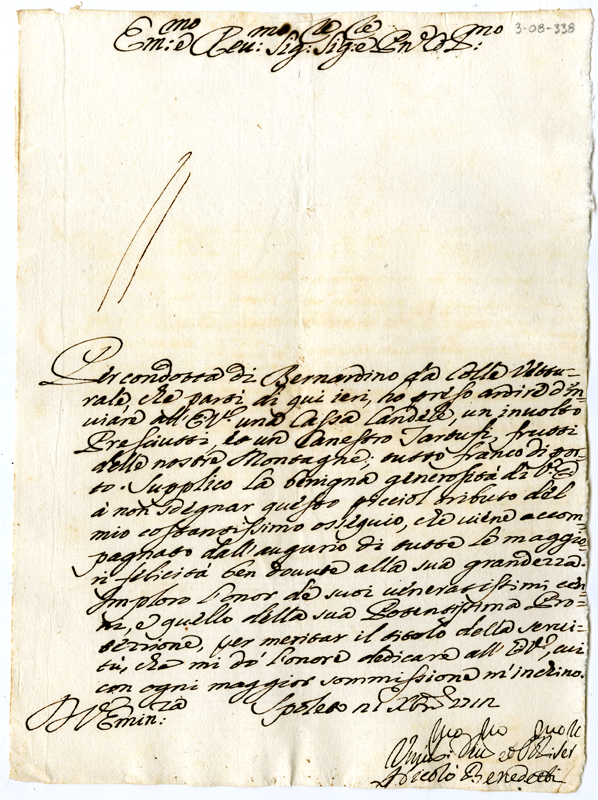 Em:mo e Reu:mo Sig:le Sig:le Pn'e
3-08-338
Per condotta di Bernardino da Colle Vettu-
rale, che partì di qui ieri, ho preso ardire d'in-
viare all'E.V. una Cassa Candele, un involto
Presciutti, et un Canestro Tartufi, frutti
delle nostre Montagne; tutto franco di por-
to. Supplico la benigna generosità di
à non isdegnar questo picciol tributo del
mio costantissimo ossequio, che viene accom-
pagnato dall'augurio di tutte le maggio-
ri felicità ben dovute alla sua grandezza.
Imploro l'onor de suoi veneratissimi cen-
ni, e quello della sua Potentissima Pro-
tezzione, per meritar il titolo della servi-
tù, che mi dò l'onore dedicare all'E.V., cui
con ogni maggior sommissione m'inchino.
D V. Emin:za Spoleto Xbre 1712
Niccolò Benedetti